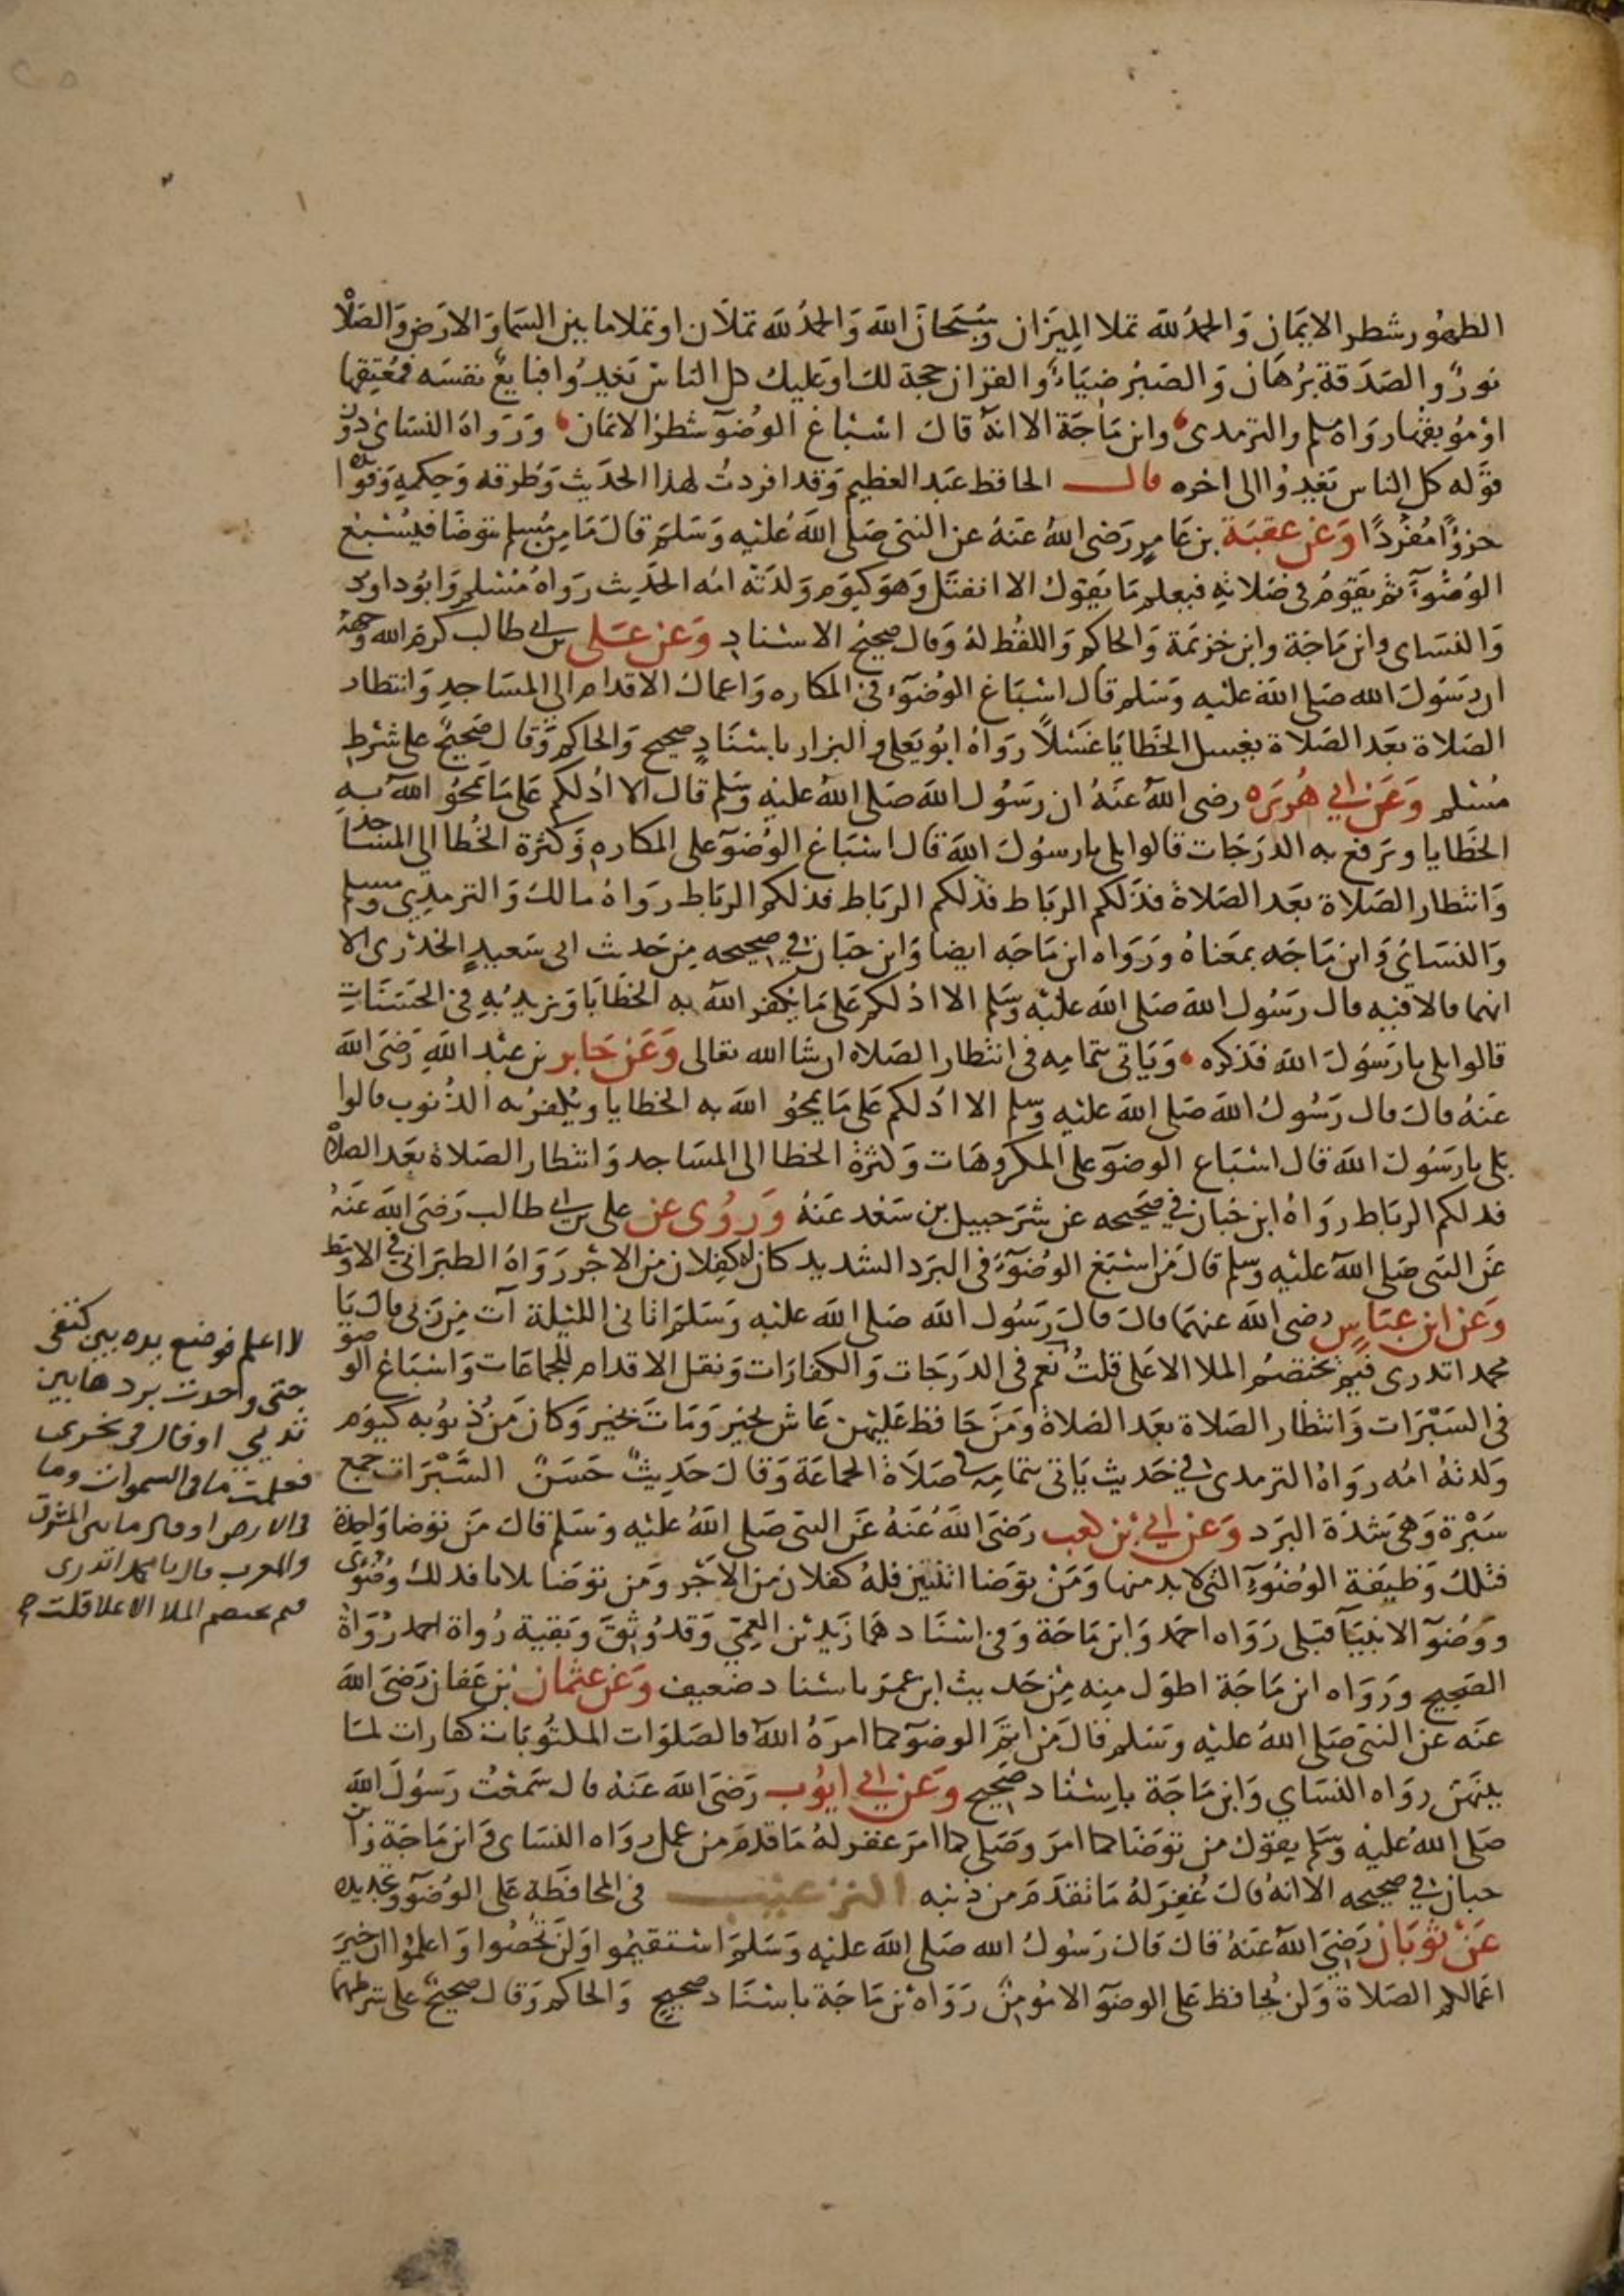 الطهور شطر الايمان والحمد لله تملا الميزان وسبحان الله والحمد لله تملآن او تملا ما بين السما والارض والصلاة
نور والصدقة برهان والصبر ضياء والقران حجة لك او عليك كل الناس يغدوا فبايع نفسه فمعتقها
او موبقها رواه مسلم والترمدى وابن ماجة الا انه قال اسباغ الوضوء شطر الايمان ورواه النسائي دون
قوله كل الناس يغدوا الى اخره قال الحافظ عبد العظيم وقد افردت لهذا الحديث وطرقه وحكمه وفوائده
جزوًا مفردًا وعن عقبة بن عامر رضى الله عنه عن النبى صلى الله عليه وسلم قال ما من مسلم يتوضا فيسبغ
الوضوء ثم يقوم فى صلاته فيعلم ما يقول الا انفتل وهو كيوم ولدته امه الحديث رواه مسلم وابو داود
والنساى وابن ماجة وابن خزيمة والحاكم واللفظ له وقال صحيح الاسناد وعن على بن ابى طالب كرم الله وجهه
ان رسول الله صلى الله عليه وسلم قال اسباغ الوضوء فى المكاره واعمال الاقدام الى المساجد وانتظار
الصلاة بعد الصلاة يغسل الخطايا غسلاً رواه ابو يعلى والبزار باسناد صحيح والحاكم وقال صحيح على شرط
مسلم وعن ابي هريره رضى الله عنه ان رسول الله صلى الله عليه وسلم قال الا ادلكم على ما يمحو الله به
الخطايا ويرفع به الدرجات قالوا بلى يا رسول الله قال اسباغ الوضوء على المكاره وكثرة الخطا الى المساجد
وانتظار الصلاة بعد الصلاة فذلكم الرباط فذلكم الرباط فذلكم الرباط رواه مالك والترمدي ومسلم
والنسائي وابن ماجه بمعناه ورواه ابن ماجه ايضا وابن حبان في صحيحه من حديث ابى سعيد الخدرى الا
انهما قالا فيه قال رسول الله صلى الله عليه وسلم الا ادلكم على ما يكفر الله به الخطايا ويزيد به فى الحسنات
قالوا بلى يا رسول الله فذكره وياتى بتمامه فى انتظار الصلاه ان شا الله تعالى وعن جابر بن عبد الله رضى الله
عنه قال قال رسول الله صلى الله عليه وسلم الا ادلكم على ما يمحو الله به الخطايا ويكفر به الذنوب قالوا
بلى يا رسول الله قال اسباغ الوضوء على المكروهات وكثرة الخطا الى المساجد وانتظار الصلاة بعد الصلاة
فدلكم الرباط رواه ابن حبان في صحيحه عن شرحبيل بن سعد عنه وروى عن على بن ابي طالب رضى الله عنه
عن النبى صلى الله عليه وسلم قال من اسبغ الوضوء فى البرد الشديد كان له كفلان من الاجر رواه الطبرانى في الاوسط
وعن ابن عباس رضى الله عنهما قال قال رسول الله صلى الله عليه وسلم اتانى الليلة آت من ربى قال يا
محمد اتدرى فيم يختصم الملا الاعلى قلت نعم فى الدرجات والكفارات ونقل الاقدام للجماعات واسباغ الوضو
فى السبرات وانتظار الصلاة بعد الصلاة ومن حافظ عليهن عاش بخير ومات بخير وكان من ذنوبه كيوم
ولدته امه رواه الترمدى في حديث ياتى بتمامه فى صلاة الجماعة وقال حديث حسن السبرات جمع
سبرة وهى شدة البرد وعن ابي بن كعب رضى الله عنه عن النبى صلى الله عليه وسلم قال من توضا واحدة
فتلك وظيفة الوضوء التى لا بد منها ومن توضا اثنتين فله كفلان من الاجر ومن توضا ثلاثا فدلك وضوءى
ووضوء الانبيآ قبلى رواه احمد وابن ماجة وفى اسنادهما زيد بن العمي وقد وثق وبقية رواة احمد رواة
الصحيح ورواه ابن ماجة اطول منه من حديث ابن عمر باسناد ضعيف وعن عثمان بن عفان رضى الله
عنه عن النبى صلى الله عليه وسلم قال من اتم الوضوء كما امره الله فالصلوات المكتوبات كفارات لما
بينهن رواه النساي وابن ماجة باسناد صحيح وعن ابي ايوب رضى الله عنه قال سمعت رسول الله
صلى الله عليه وسلم يقول من توضا كما امر وصلى كما امر غفر له ما قدم من عمل رواه النساى وابن ماجة وابن
حبان في صحيحه الا انه قال غفر له ما تقدم من ذنبه الترغيب فى المحافظة على الوضوء وتجديده
عن ثوبان رضى الله عنه قال قال رسول الله صلى الله عليه وسلم استقيموا ولن تحصوا واعلموا ان خير
اعمالكم الصلاة ولن يحافظ على الوضوء الا مومن رواه بن ماجة باسناد صحيح والحاكم وقال صحيح على شرطهما
لا اعلم فوضع يده بين كتفى
حتى وجدت بردها بين
ثديي او قال فى نحرى
فعلمت ما فى السموات وما
فى الارض او قال ما بين المشرق
والمغرب قال يا محمد اتدرى
فيم يختصم الملا الاعلا قلت